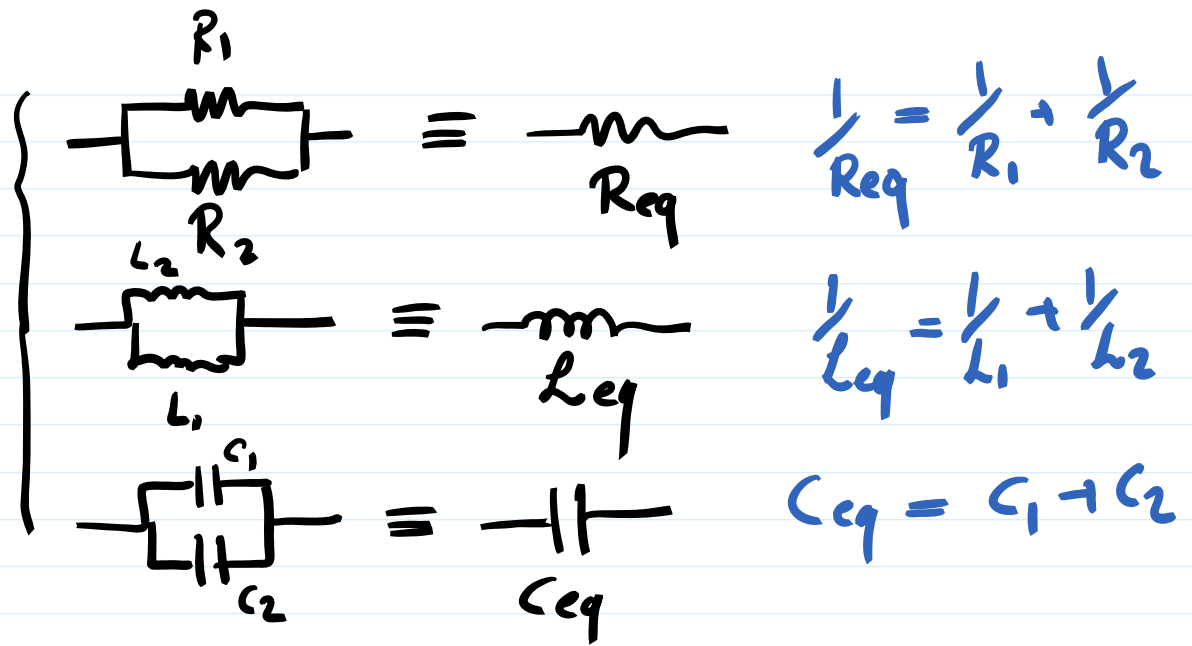 R1
R2
≡ Req
1/Req = 1/R1 + 1/R2
L2
L1
≡ Leq
1/Leq = 1/L1 + 1/L2
C1
C2
≡ Ceq
Ceq = C1 + C2